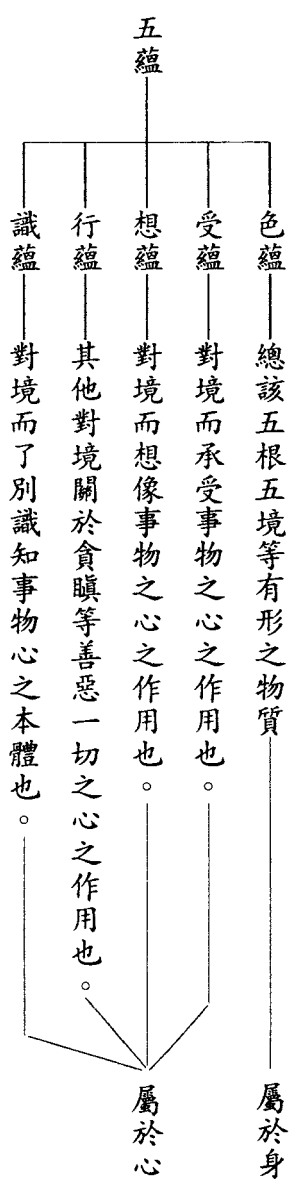 五蘊
色蘊
總該五根五境等有形之物質
屬於身
受蘊
對境而承受事物之心之作用也。
想蘊
對境而想像事物之心之作用也。
行蘊
其他對境關於貪瞋等善惡一切之心之作用也。
識蘊
對境而了別識知事物心之本體也。
屬於心